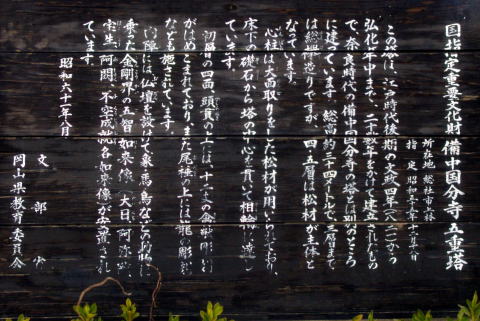 国指定重要文化財 備中国分寺五重塔
所在地 総社市上林
指定 昭和五十五年十二月
この塔は、江戸時代後期の文政四年(一八二一)から
弘化年中まで、二十数年をかけて建立されたもの
で、奈良時代の備中国分寺の塔とは別のところ
に建っています。総高約三十四メートルで、三層まで
は総欅造りですが、四・五層は松材が主体と
なっています。
心柱は大面取りをした松材が用いられており、
床下の礎石から塔の中心を貫いて相輪に達し
ています。
初層の四面、頭貫の上には、十二支の彫刻
がはめこまれており、また尾棰の上には龍の彫刻
なども施されています。
内陣には、仏壇を設けて象・馬・鳥などの動物に
乗った金剛界の五智如来像(大日、阿弥陀、
宝生、阿閦、不空成就各如来像)が安置され
ています。
昭和六十一年八月
文部省
岡山県教育委員会